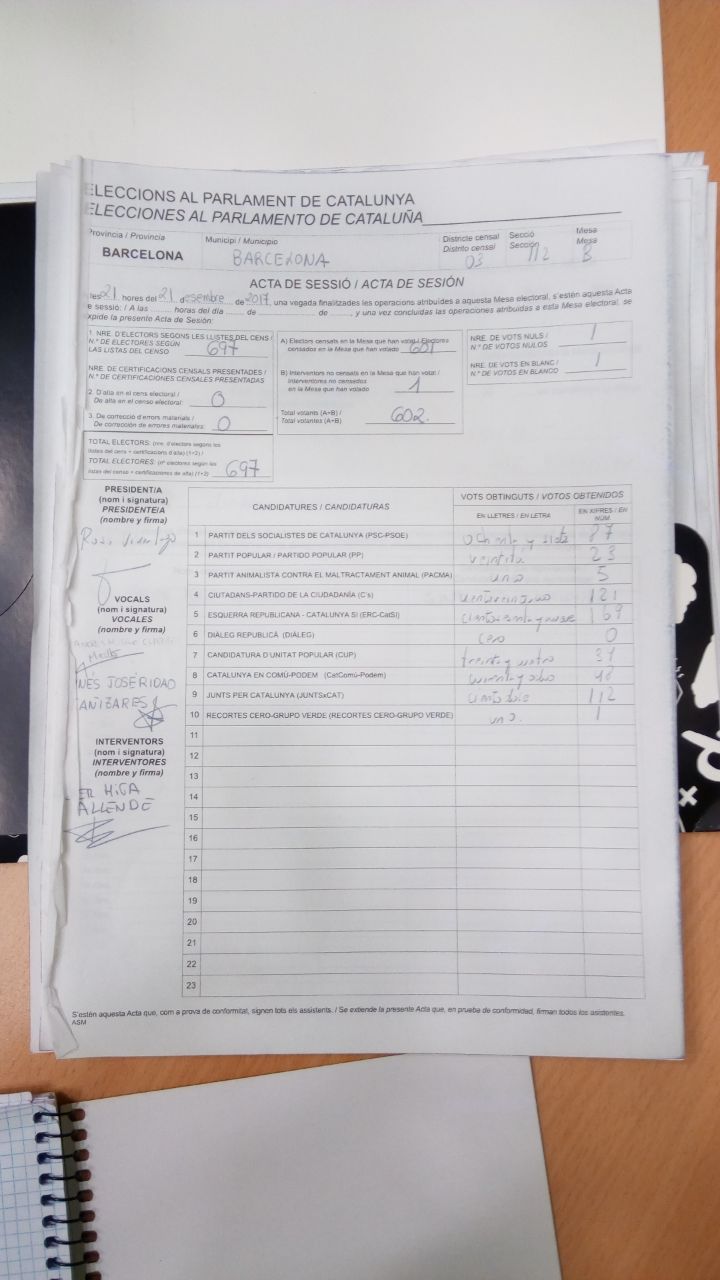 ELECCIONS AL PARLAMENT DE CATALUNYA
ELECCIONES AL PARLAMENTO DE CATALUÑA
Província / Provincia
BARCELONA
Municipi / Municipio
BARCELONA
Districte censal
Distrito censal
03
Secció
Sección
112
Mesa
Mesa
B
ACTA DE SESSIÓ / ACTA DE SESIÓN
les 21 hores del 21 desembre de 2017, una vegada finalitzades les operacions atribuïdes a aquesta Mesa electoral, s'estén aquesta Acta
e sessió: / A las horas del día de de , y una vez concluidas las operaciones atribuidas a esta Mesa electoral, se
xpide la presente Acta de Sesión:
1. NRE. D'ELECTORS SEGONS LES LLISTES DEL CENS /
N.º DE ELECTORES SEGÚN
LAS LISTAS DEL CENSO 697
NRE. DE CERTIFICACIONS CENSALS PRESENTADES /
N.º DE CERTIFICACIONES CENSALES PRESENTADAS
2. D'alta en el cens electoral /
De alta en el censo electoral: 0
3. De correcció d'errors materials /
De corrección de errores materiales: 0
TOTAL ELECTORS: (nre. d'electors segons les
llistes del cens + certificacions d'alta) (1+2) /
TOTAL ELECTORES: (nº electores según las
listas del censo + certificaciones de alta) (1+2) 697
A) Electors censats en la Mesa que han votat / Electores
censados en la Mesa que han votado 601
B) Interventors no censats en la Mesa que han votat /
Interventores no censados
en la Mesa que han votado 1
Total votants (A+B) /
Total votantes (A+B) 602
NRE. DE VOTS NULS /
N.º DE VOTOS NULOS 1
NRE. DE VOTS EN BLANC /
N.º DE VOTOS EN BLANCO 1
PRESIDENT/A
(nom i signatura)
PRESIDENTE/A
(nombre y firma)
VOCALS
(nom i signatura)
VOCALES
(nombre y firma)
INTERVENTORS
(nom i signatura)
INTERVENTORES
(nombre y firma)
ALLENDE
CANDIDATURES / CANDIDATURAS
VOTS OBTINGUTS / VOTOS OBTENIDOS
EN LLETRES / EN LETRA
EN XIFRES / EN NÚM.
1 PARTIT DELS SOCIALISTES DE CATALUNYA (PSC-PSOE) ochenta y siete 87
2 PARTIT POPULAR / PARTIDO POPULAR (PP) 23
3 PARTIT ANIMALISTA CONTRA EL MALTRACTAMENT ANIMAL (PACMA) 5
4 CIUTADANS-PARTIDO DE LA CIUDADANÍA (C's) 121
5 ESQUERRA REPUBLICANA - CATALUNYA SÍ (ERC-CatSí) 169
6 DIÀLEG REPUBLICÀ (DIÀLEG) cero 0
7 CANDIDATURA D'UNITAT POPULAR (CUP) treinta y cuatro 34
8 CATALUNYA EN COMÚ-PODEM (CatComú-Podem) cuarenta y ocho 48
9 JUNTS PER CATALUNYA (JUNTSxCAT) 112
10 RECORTES CERO-GRUPO VERDE (RECORTES CERO-GRUPO VERDE) uno. 1
11
12
13
14
15
16
17
18
19
20
21
22
23
S'estén aquesta Acta que, com a prova de conformitat, signen tots els assistents. / Se extiende la presente Acta que, en prueba de conformidad, firman todos los asistentes.
ASM